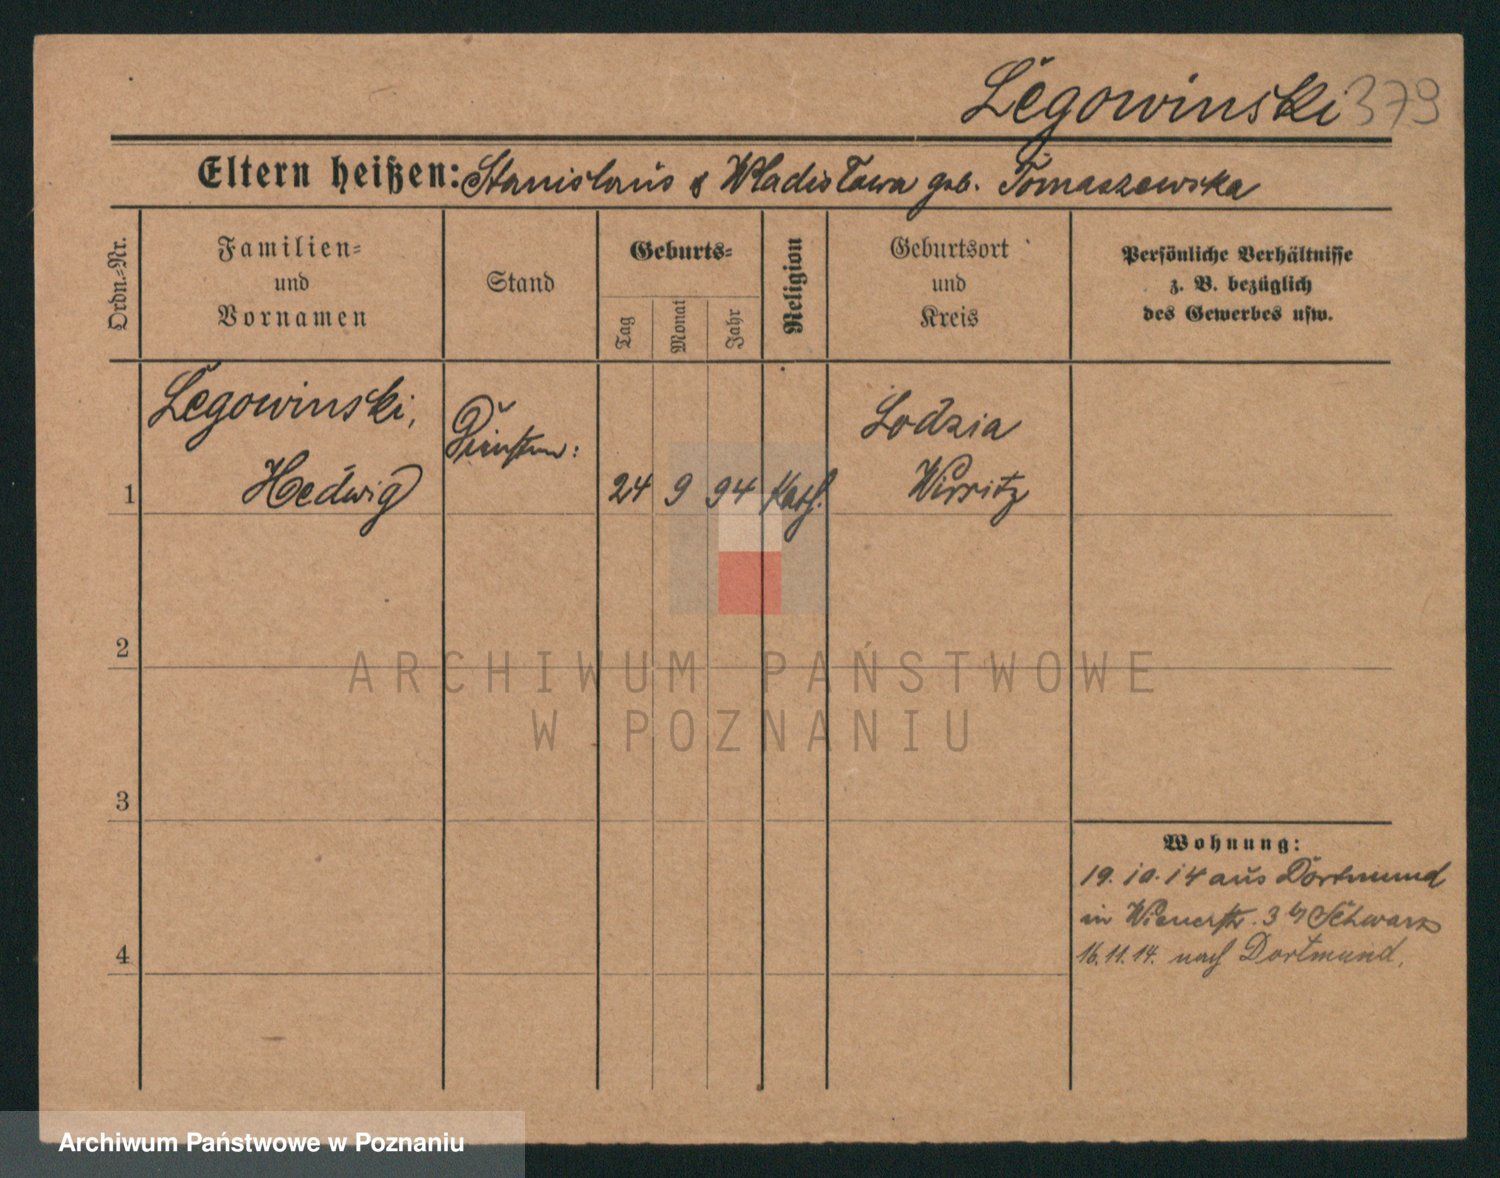 Legowinski 379
Eltern heißen: Stanislaus & Wladislawa geb. Tomaszewska
Ordn.-Nr.
Familien-
und
Vornamen
Stand
Geburts-
Tag
Monat
Jahr
Religion
Geburtsort
und
Kreis
Persönliche Verhältnisse
z. B. bezüglich
des Gewerbes usw.
1
Legowinski,
Hedwig
24 9 94 Kath.
Lodzia
Wirsitz
2
3
4
Wohnung:
19.10.14 aus Dortmund
in Wienerstr. 3 b/ Schwarz
16.11.14. nach Dortmund.
ARCHIWUM PAŃSTWOWE
W POZNANIU
Archiwum Państwowe w Poznaniu